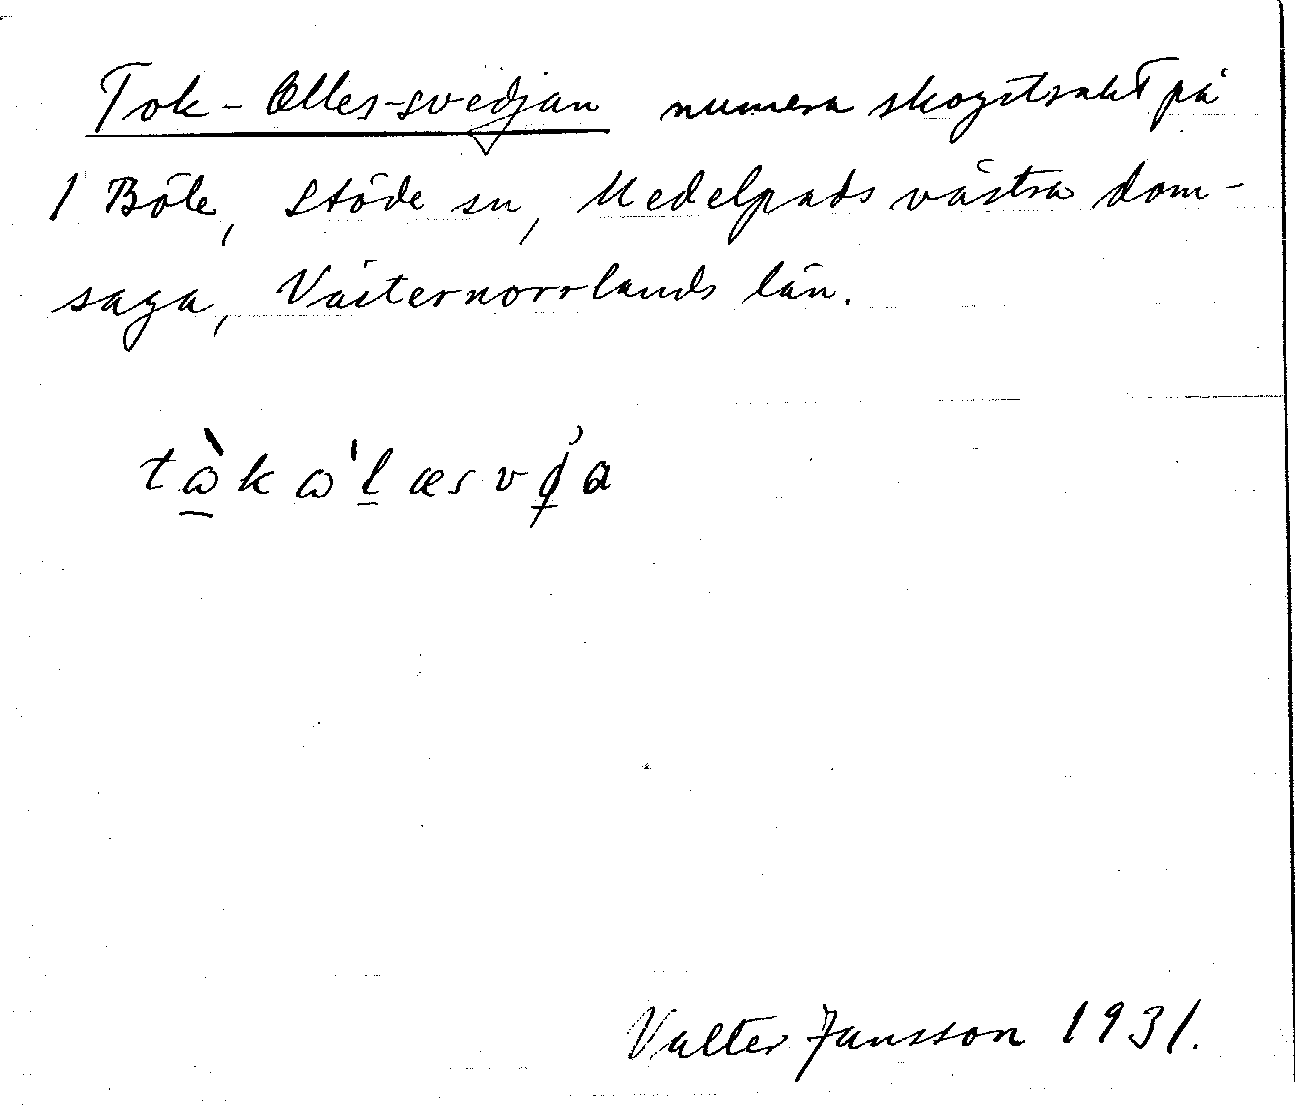 Tok-Olles-svedjan numera skogstrakt på
1 Böle, Stöde sn, Medelpads västra dom-
saga, Västernorrlands län.
Valter Jansson 1931.